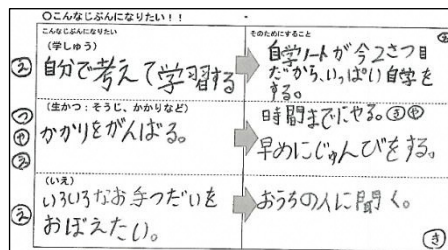 ○こんなじぶんになりたい！！
こんなじぶんになりたい
そのためにすること
（学しゅう）
え
自分で考えて学習する
自学ノートが今2さつ目
だから、いっぱい自学を
する。
（生かつ：そうじ、かかりなど）
つ
や
え
かかりをがんばる。
時間までにやる。き や
早めにじゅんびをする。
（いえ）
え
いろいろなお手つだいを
おぼえたい。
おうちの人に聞く。
き